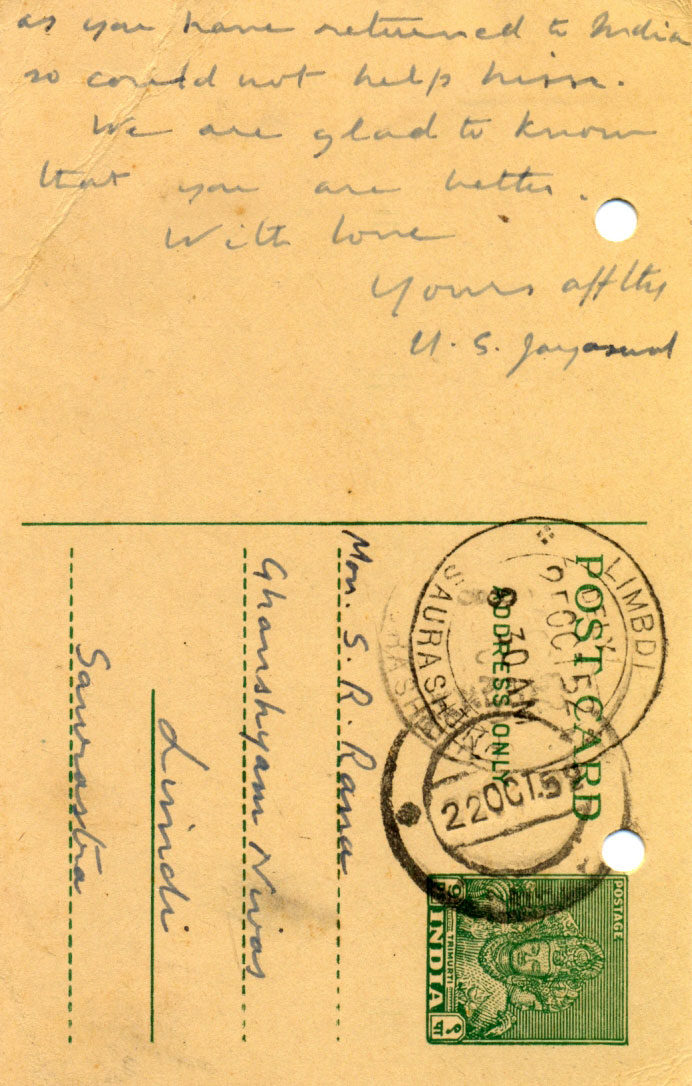 as you have returned to India
so could not help him.
We are glad to know
that you are better.
With love
Yours affly
U. S. Jayaswal
POST CARD
ADDRESS ONLY
Mon. S. R. Rana
Ghanshyam Nivas
Limdi
Saurastra
LIMBDI
SAURASHTRA
25 OCT 52
9 30 AM
22 OCT. 52
POSTAGE
TRIMURTI
INDIA
9 PS
९ पा